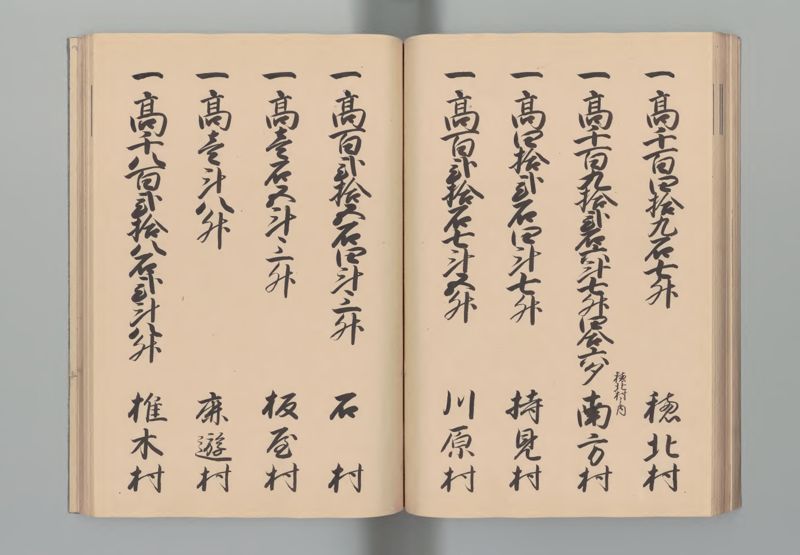 一高千百四拾九石七升 穂北村
一高千百九拾弐石六斗七升四合六夕 穂北村之内 南方村
一高四拾弐石四斗七升 持見村
一高百弐拾石七斗五升 川原村
一高百弐拾五石四斗三升 石村
一高壱石五斗三升 板屋村
一高壱斗八升 麻遊村
一高千八百弐拾八石弐斗八升 椎木村